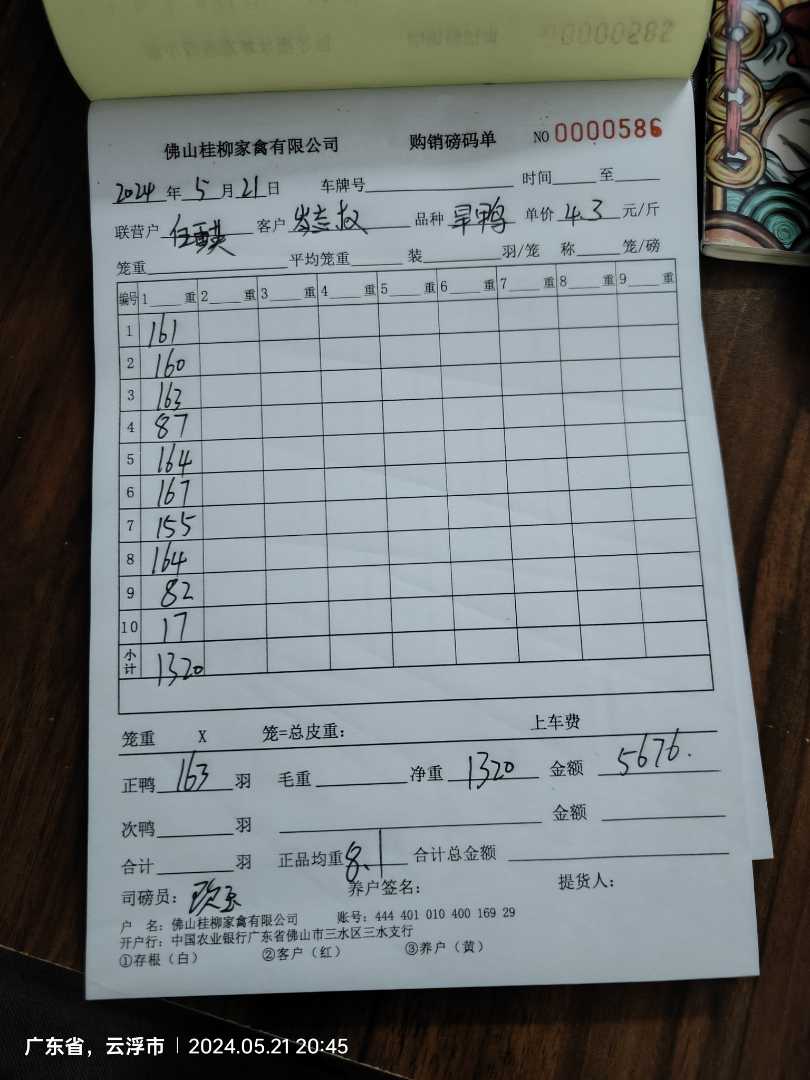 佛山桂柳家禽有限公司 购销磅码单 NO 0000586
2024年5月21日 车牌号 时间 至
联营户 客户 岑志权 品种 旱鸭 单价 4.3 元/斤
笼重 平均笼重 装 羽/笼 称 笼/磅
编号 1 重 2 重 3 重 4 重 5 重 6 重 7 重 8 重 9 重
1 161
2 160
3 163
4 87
5 164
6 167
7 155
8 164
9 82
10 17
小计 1320
笼重 X 笼=总皮重: 上车费
正鸭 163 羽 毛重 净重 1320 金额 5676.
次鸭 羽 金额
合计 羽 正品均重 8.1 合计总金额
司磅员: 养户签名: 提货人:
户 名: 佛山桂柳家禽有限公司 账号: 444 401 010 400 169 29
开户行: 中国农业银行广东省佛山市三水区三水支行
①存根(白) ②客户(红) ③养户(黄)
广东省，云浮市 | 2024.05.21 20:45